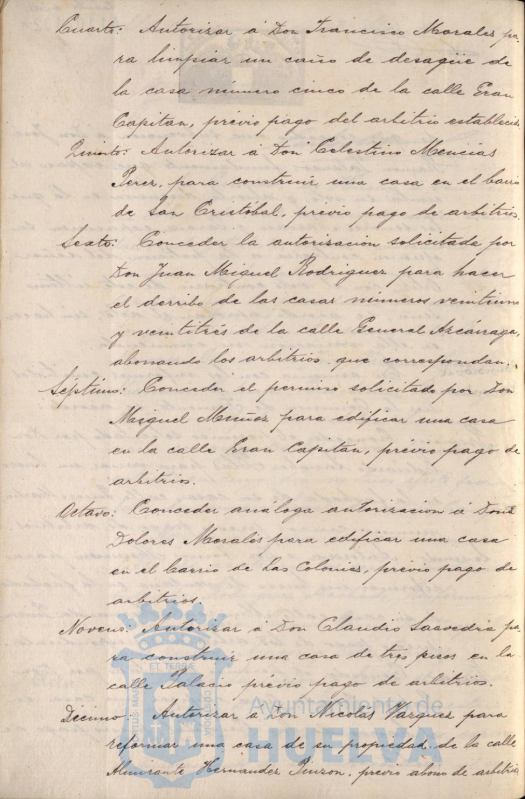 Cuarto: Autorizar á Don Francisco Morales pa-
ra limpiar un caño de desagüe de
la casa número cinco de la calle Gran
Capitan, prévio pago del arbitrio establecido.
Quinto: Autorizar á Don Celestino Mencias
Perez, para construir una casa en el barrio
de San Cristobal, prévio pago de arbitrios.
Sexto: Conceder la autorizacion solicitada por
Don Juan Miguel Rodriguez para hacer
el derribo de las casas números veintiuno
y veintitrés de la calle General Azcárraga,
abonando los arbitrios que correspondan.
Séptimo: Conceder el permiso solicitado por Don
Miguel Muñoz para edificar una casa
en la calle Gran Capitan, prévio pago de
arbitrios.
Octavo: Conceder análoga autorizacion á Doña
Dolores Morales para edificar una casa
en el barrio de Las Colonias, prévio pago de
arbitrios.
Noveno: Autorizar á Don Claudio Saavedra pa-
ra construir una casa de tres pisos en la
calle Palacio prévio pago de arbitrios.
Décimo: Autorizar á Don Nicolás Vazquez para
reformar una casa de su propiedad de la calle
Almirante Hernandez Pinzon, prévio abono de arbitrios
Ayuntamiento de
HUELVA